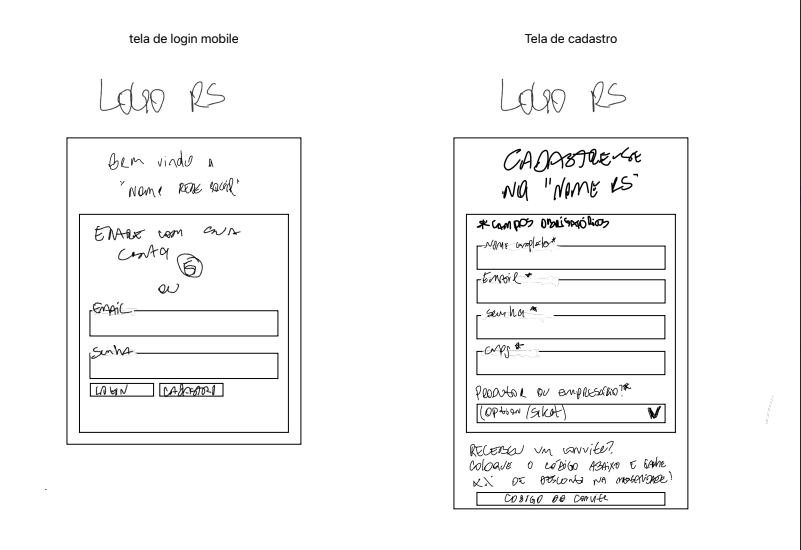 tela de login mobile
Logo RS
Bem vindo a
"Nome REDE social"
ENTRE com sua
Conta G
ou
EMAIL
Senha
LOGIN
CADASTRO
Tela de cadastro
Logo RS
CADASTRE-SE
NA "NOME RS"
*CAMPOS OBRIGATÓRIOS
NOME completo*
Email *
Senha *
CNPJ *
PRODUTOR OU EMPRESÁRIO?*
(option/select)
RECEBEU UM convite?
COLOQUE O CÓDIGO ABAIXO E GANHE
DE DESCONTO NA mensalidade!
CODIGO DO CONVITE